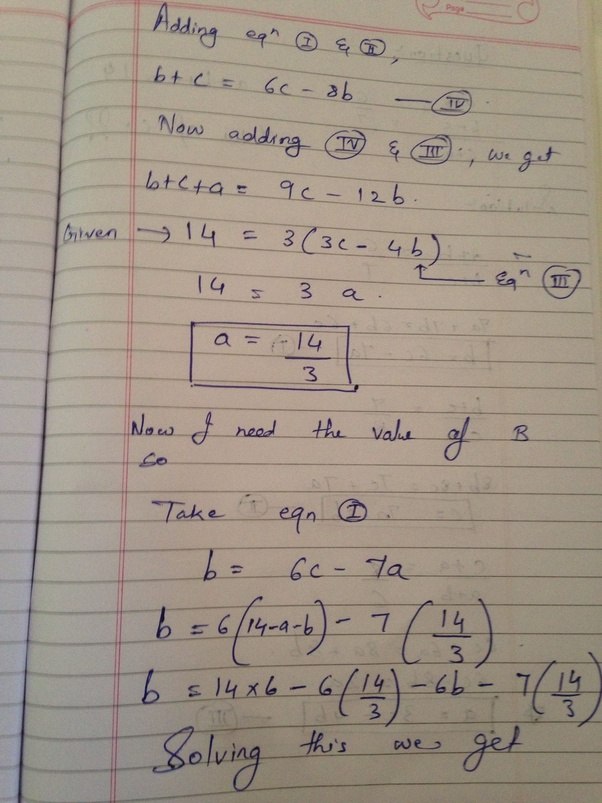 Page
Adding eqn I & II,
b+c = 6c - 8b — IV
Now adding IV & III, we get
b+c+a = 9c - 12b.
Given → 14 = 3(3c - 4b)
Eqn III
14 = 3 a.
a = 14/3
Now I need the value of B
so
Take eqn I.
b = 6c - 7a
b = 6(14-a-b) - 7(14/3)
b = 14×6 - 6(14/3) - 6b - 7(14/3)
Solving this we get